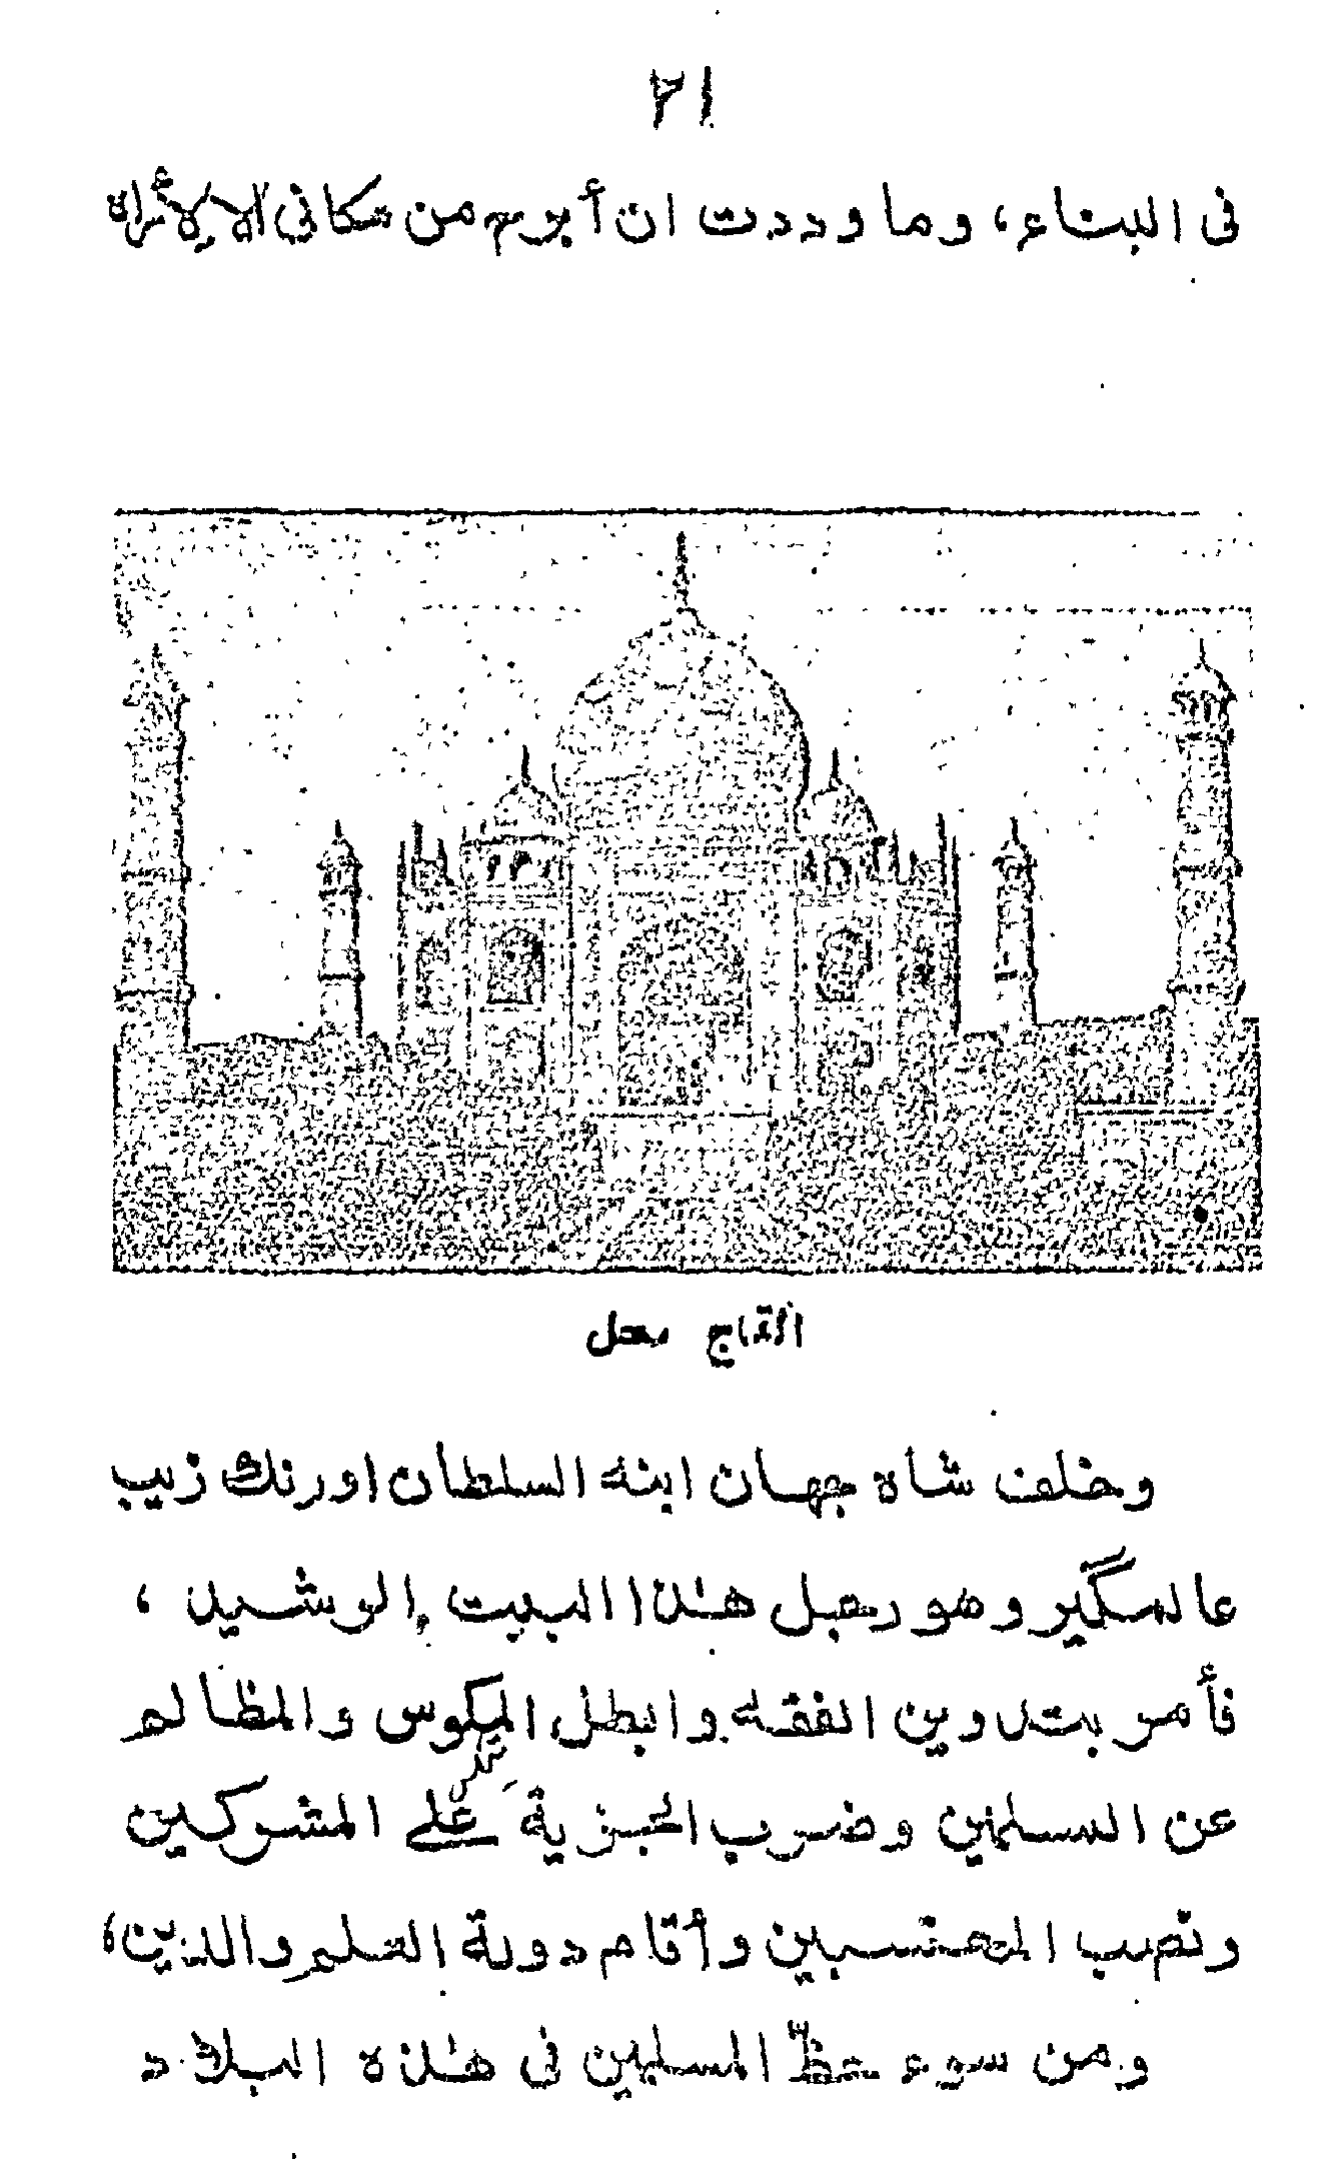 ٢١
فى البناء، وما وددت ان أبرح من مكانى الا لأراه
التاج محل
وخلف شاه جهان ابنه السلطان اورنك زيب
عالمگير وهو رجل هذا البيت الرشيد ،
فأمر بتدوين الفقه وابطل المكوس والمظالم
عن المسلمين وضرب الجزية على المشركين
ونصب المحتسبين وأقام دولة العلم والدين،
ومن سوء حظّ المسلمين فى هذه البلاد